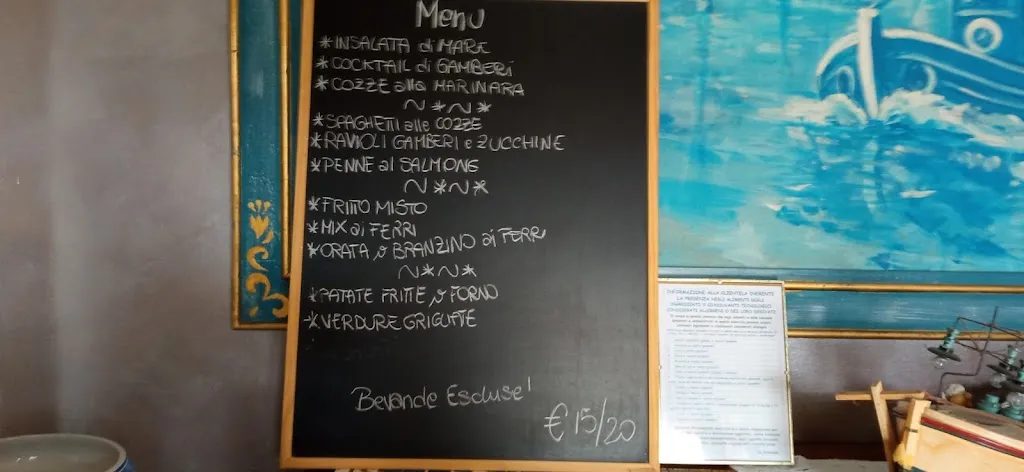 Menu
*INSALATA di MARE
*COCKTAIL di GAMBERi
*COZZE alla MARINARA
~*~*
*SPAGHETTI alle COZZE
*RAVIOLI GAMBERI e ZUCCHINE
*PENNE al SALMONE
~*~*
*FRITTO MISTO
*MIX ai FERRI
*ORATA o BRANZINO ai FERRI
~*~*
*PATATE FRITTE o FORNO
*VERDURE GRIGLIATE
Bevande Escluse!
€ 15/20
INFORMAZIONE ALLA CLIENTELA INERENTE
LA PRESENZA NEGLI ALIMENTI DEGLI
INGREDIENTI O COADIUVANTI TECNOLOGICI
CONSIDERATI ALLERGENI O DEI LORO DERIVATI